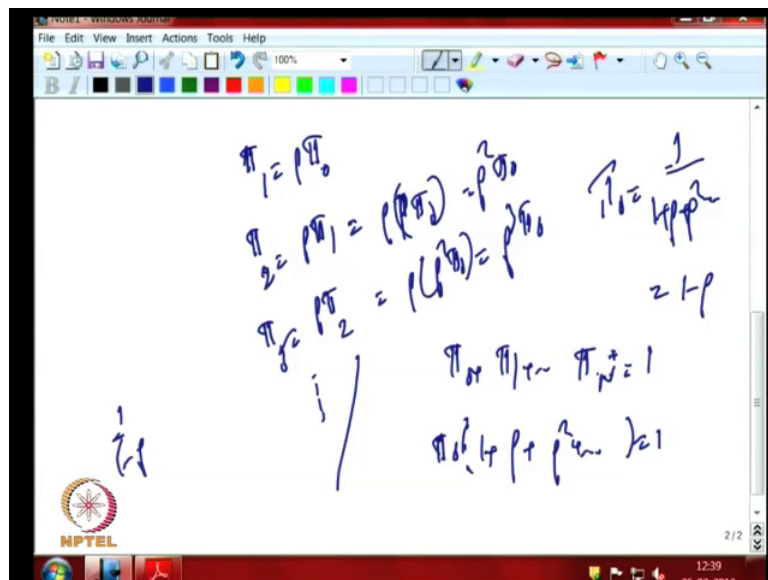 Note1 - Windows Journal
File Edit View Insert Actions Tools Help
100%
B I
π₁ = ρπ₀
π₂ = ρπ₁ = ρ(ρπ₀) = ρ²π₀
π₃ = ρπ₂ = ρ(ρ²π₀) = ρ³π₀
π₀ = 1/(1+ρ+ρ²~
= 1-ρ
π₀+ π₁+~ π_N+ = 1
π₀{1+ρ+ρ²+~ } = 1
1/(1-ρ
NPTEL
2/2
12:39